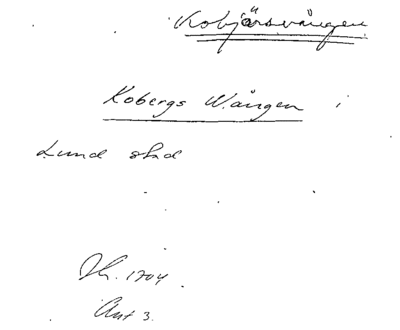 Kobjärsvången
Kobergs Wången i
Lund stad
Jb. 1704.
Akt 3.